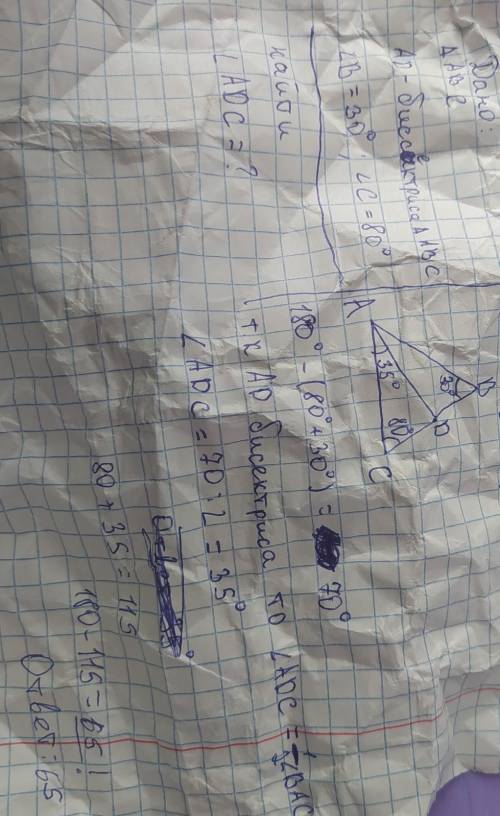 Дано:
△ABC
AD - биссектриса △ABC
∠B = 30°; ∠C = 80°
найти
∠ADC = ?
B
30°
D
A
35°
80°
C
180° - (80° + 30°) = 70°
т к AD бисектриса то ∠ADC = ½∠BAC
∠ADC = 70 : 2 = 35°
80 + 35 = 115
180 - 115 = 65!
Ответ: 65